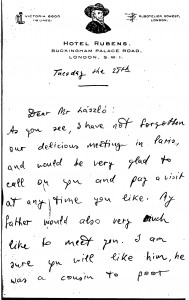 VICTORIA 6600
(18 LINES)
RUBOTELIER SOWEST,
LONDON.
HOTEL RUBENS,
BUCKINGHAM PALACE ROAD,
LONDON, S.W.1.
Tuesday the 25th
Dear Mr László:
As you see, I have not forgotten
our delicious meeting in Paris,
and would be very glad to
call on you and pay a visit
at any time you like. My
father would also very much
like to meet you. I am
sure you will like him, he
was a cousin to poor